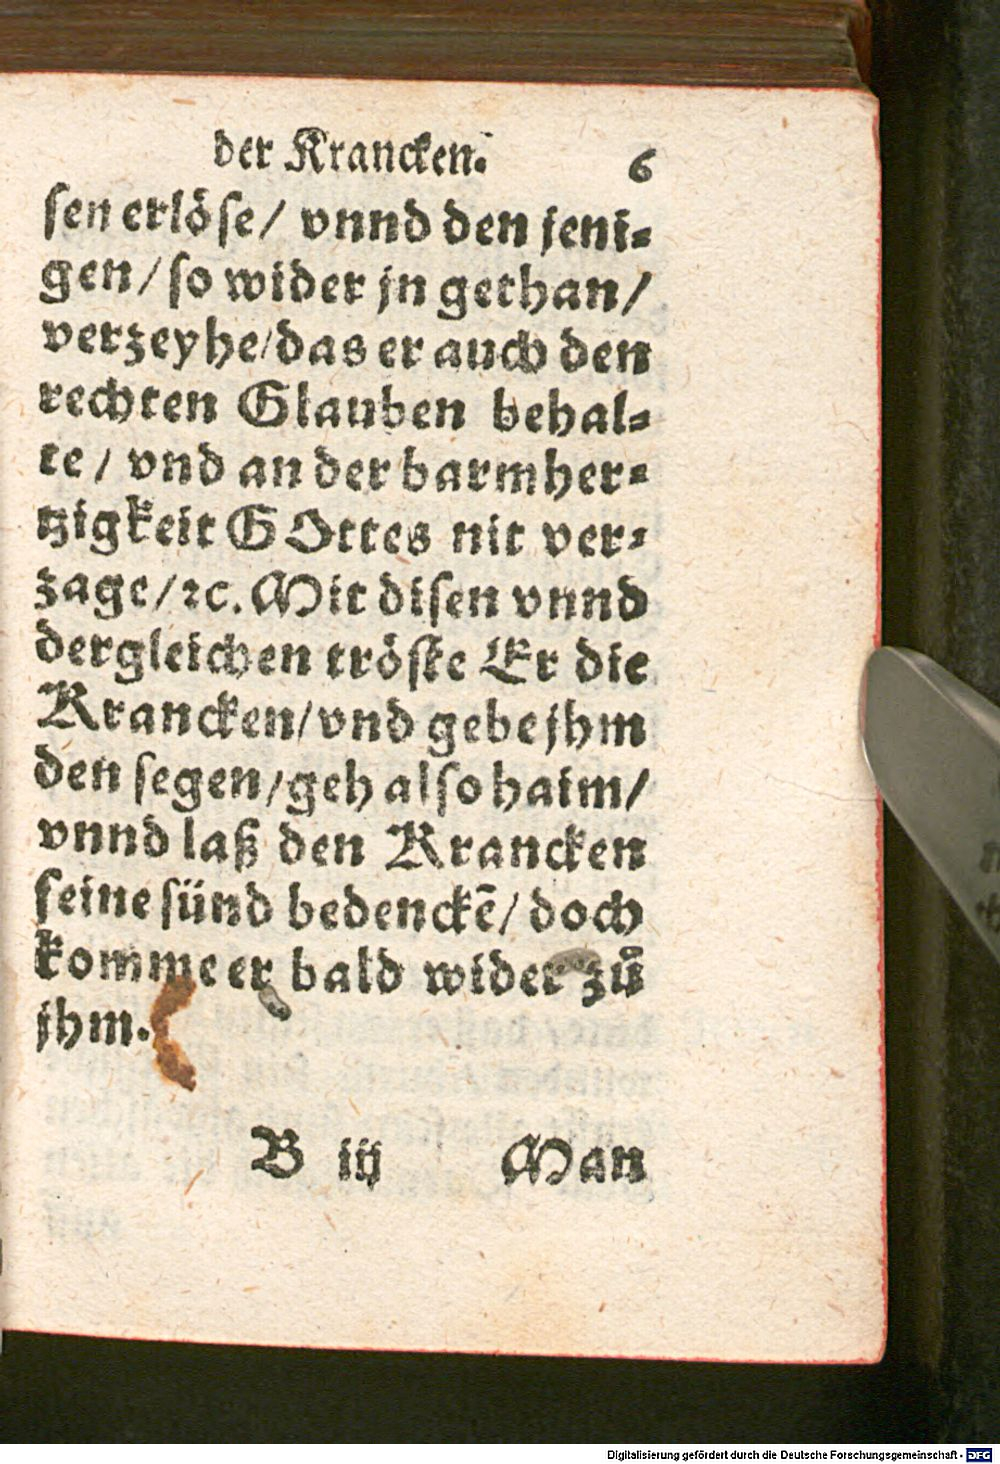 der Krancken. 6
sen erlöse/ vnnd den jeni-
gen/ so wider jn gethan/
verzeyhe/ das er auch den
rechten Glauben behal-
te/ vnd an der barmher-
tzigkeit GOttes nit ver-
zage/ ꝛc. Mit disen vnnd
dergleichen tröste Er die
Krancken/ vnd gebe jhm
den segen/ geh also haim/
vnnd laß den Krancken
seine sünd bedenckē/ doch
komme er bald wider zů
jhm.
B iij Man
Digitalisierung gefördert durch die Deutsche Forschungsgemeinschaft - DFG